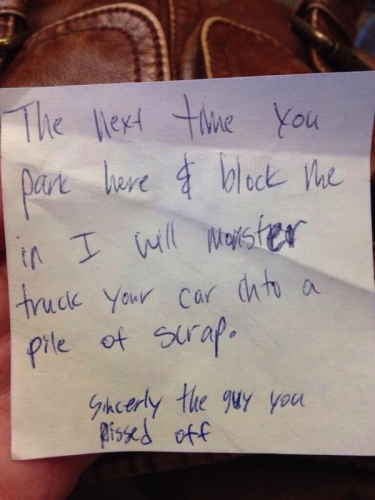 The next time you
park here & block me
in I will monster
truck your car into a
pile of scrap.
Sincerly the guy you
pissed off